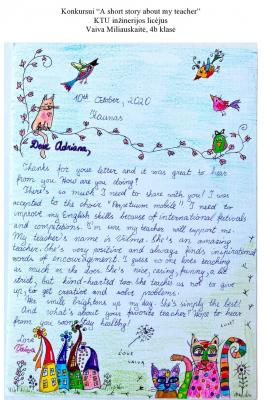 Konkursui “A short story about my teacher”
KTU inžinerijos licėjus
Vaiva Miliauskaitė, 4b klasė
10th October, 2020
Kaunas
Dear Adriana,
Thanks for your letter and it was great to hear
from you. How are you doing?
There's so much I need to share with you! I was
accepted to the choir "Perpetuum mobile"! I need to
improve my English skills because of international festivals
and competitions. I'm sure my teacher will support me.
My teacher's name is Vilma. She's an amazing
teacher. She's very positive and always finds inspirational
words of encouragement. I guess no one loves teaching
as much as she does. She's nice, caring, funny, a bit
strict, but kind-hearted too. She teaches us not to give
up, to get creative and solve problems.
Her smile brightens up my day. She's simply the best!
And what's about your favorite teacher? Hope to hear
from you soon. Stay healthy!
Love
Vaiva
LOVE
VAIVA